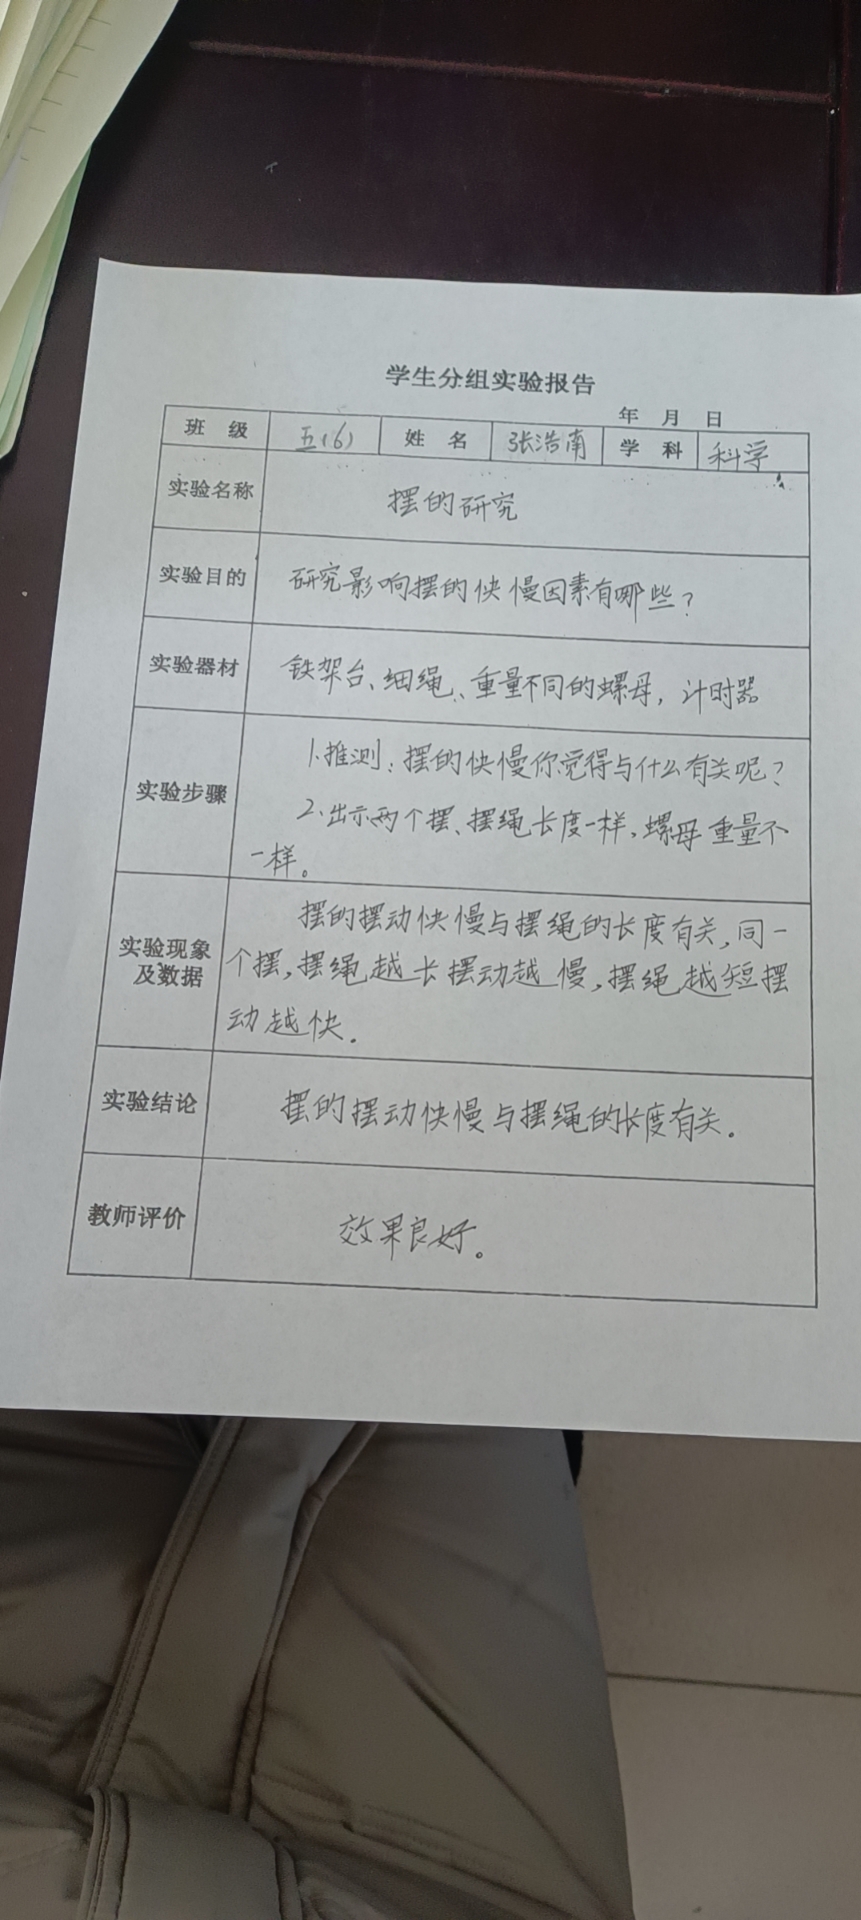 学生分组实验报告
年 月 日
班 级 五(6) 姓 名 张浩南 学 科 科学
实验名称 摆的研究
实验目的 研究影响摆的快慢因素有哪些?
实验器材 铁架台、细绳、重量不同的螺母，计时器
实验步骤 1.推测：摆的快慢你觉得与什么有关呢?
2.出示两个摆、摆绳长度一样，螺母重量不
一样。
实验现象及数据 摆的摆动快慢与摆绳的长度有关，同一
个摆，摆绳越长摆动越慢，摆绳越短摆
动越快.
实验结论 摆的摆动快慢与摆绳的长度有关.
教师评价 效果良好。